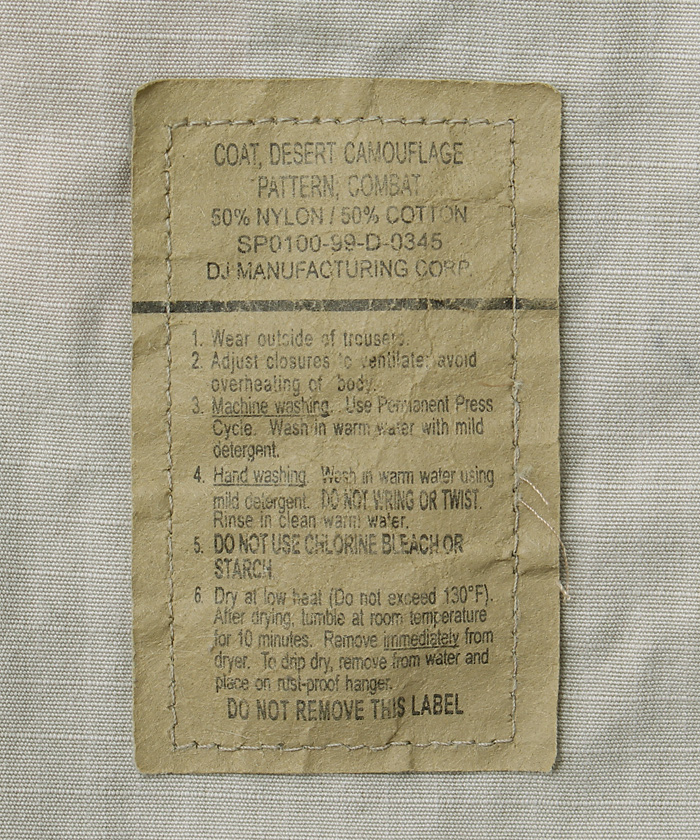 COAT, DESERT CAMOUFLAGE
PATTERN, COMBAT
50% NYLON / 50% COTTON
SP0100-99-D-0345
DJ MANUFACTURING CORP.
1. Wear outside of trousers.
2. Adjust closures to ventilate; avoid
overheating of body.
3. Machine washing. Use Permanent Press
Cycle. Wash in warm water with mild
detergent.
4. Hand washing. Wash in warm water using
mild detergent. DO NOT WRING OR TWIST.
Rinse in clean warm water.
5. DO NOT USE CHLORINE BLEACH OR
STARCH
6. Dry at low heat (Do not exceed 130°F).
After drying, tumble at room temperature
for 10 minutes. Remove immediately from
dryer. To drip dry, remove from water and
place on rust-proof hanger.
DO NOT REMOVE THIS LABEL